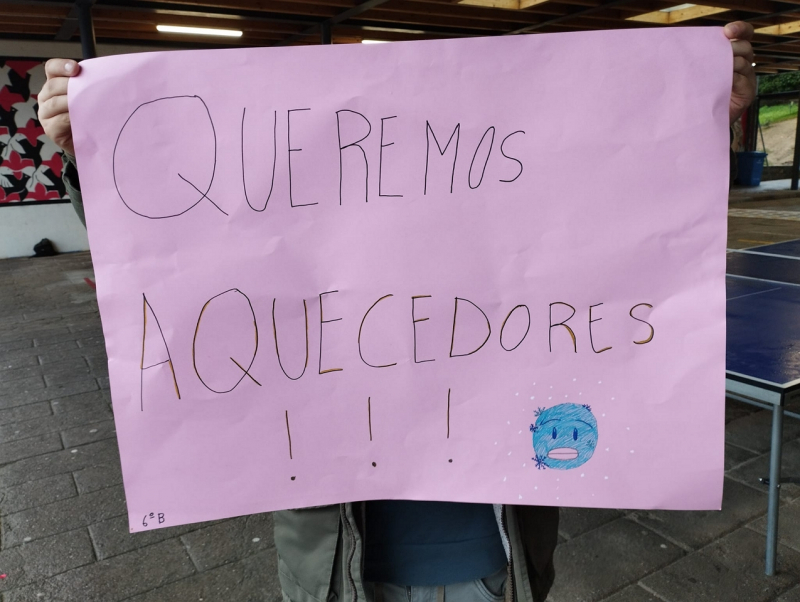 QUEREMOS
AQUECEDORES
! ! !
6º B